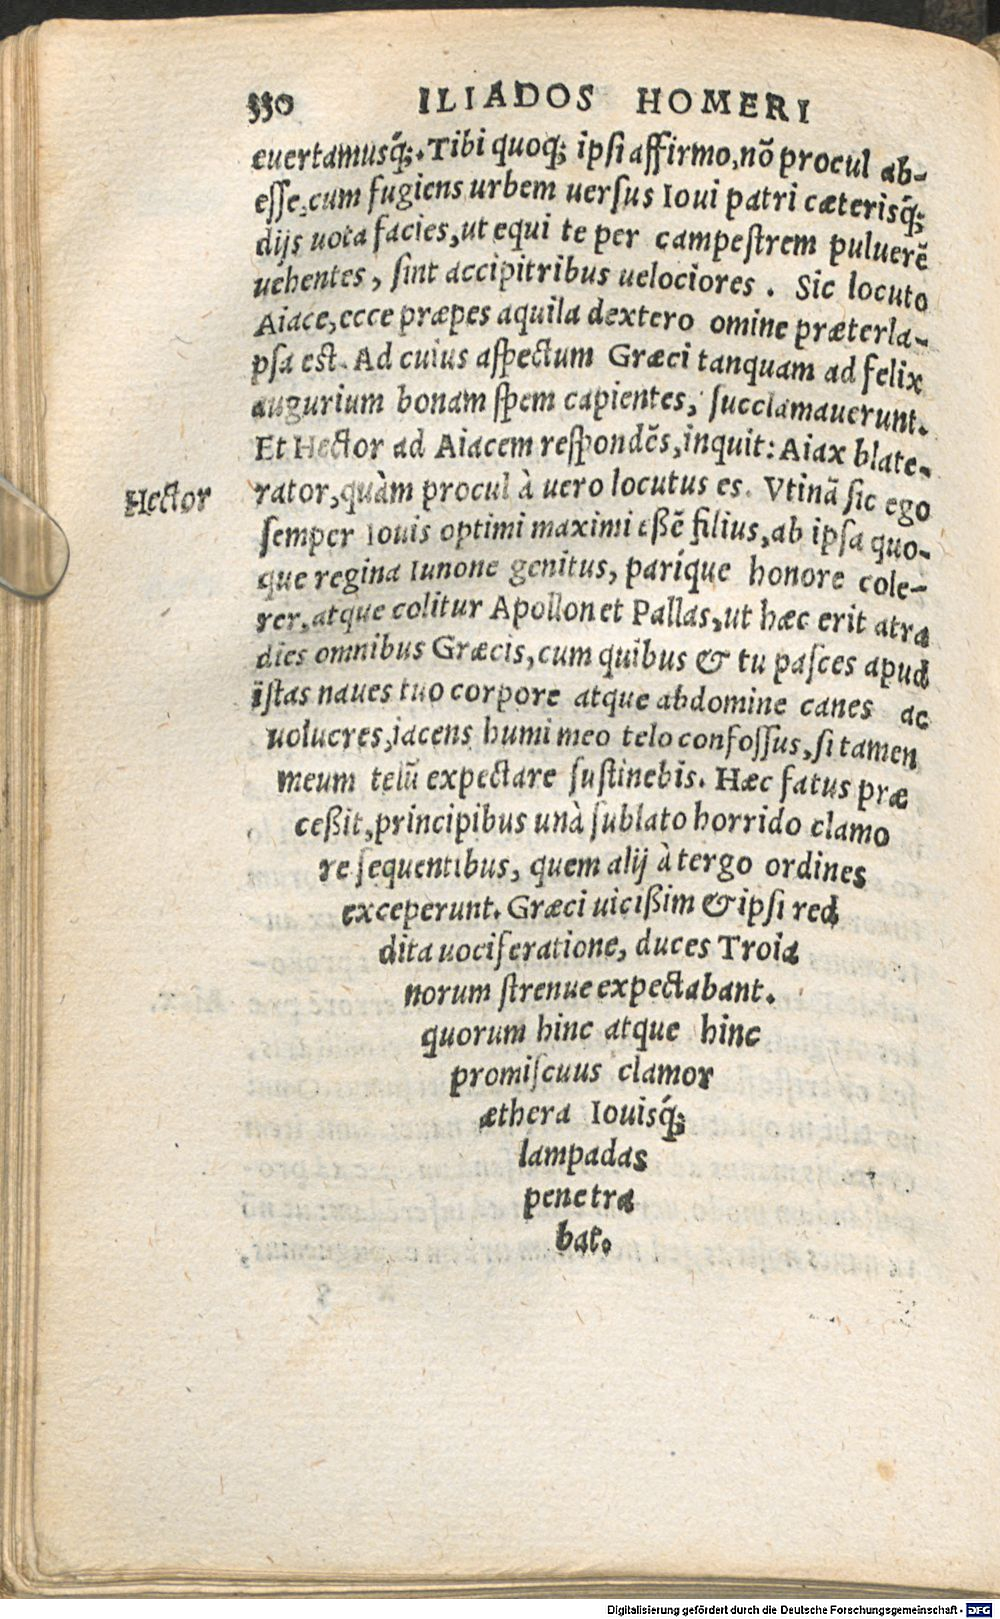 330 ILIADOS HOMERI
euertamusq́;. Tibi quoq; ipsi affirmo, nõ procul ab-
esse, cum fugiens urbem uersus Ioui patri cæterisq́;
dijs uota facies, ut equi te per campestrem puluerẽ
uehentes, sint accipitribus uelociores. Sic locuto
Aiace, ecce præpes aquila dextero omine præterla-
psa est. Ad cuius aspectum Græci tanquam ad felix
augurium bonam spem capientes, succlamauerunt.
Et Hector ad Aiacem respondẽs, inquit: Aiax blate-
Hector
rator, quàm procul à uero locutus es. Vtinã sic ego
semper Iouis optimi maximi eßẽ filius, ab ipsa quo-
que regina Iunone genitus, parique honore cole-
rer, atque colitur Apollon et Pallas, ut hæc erit atra
dies omnibus Græcis, cum quibus & tu pasces apud
istas naues tuo corpore atque abdomine canes ac
uolucres, iacens humi meo telo confossus, si tamen
meum telũ expectare sustinebis. Hæc fatus præ
ceßit, principibus unà sublato horrido clamo
re sequentibus, quem alij à tergo ordines
exceperunt. Græci uicißim & ipsi red
dita uociferatione, duces Troia
norum strenue expectabant.
quorum hinc atque hinc
promiscuus clamor
æthera Iouisq́;
lampadas
penetra
bat.
Digitalisierung gefördert durch die Deutsche Forschungsgemeinschaft - DFG